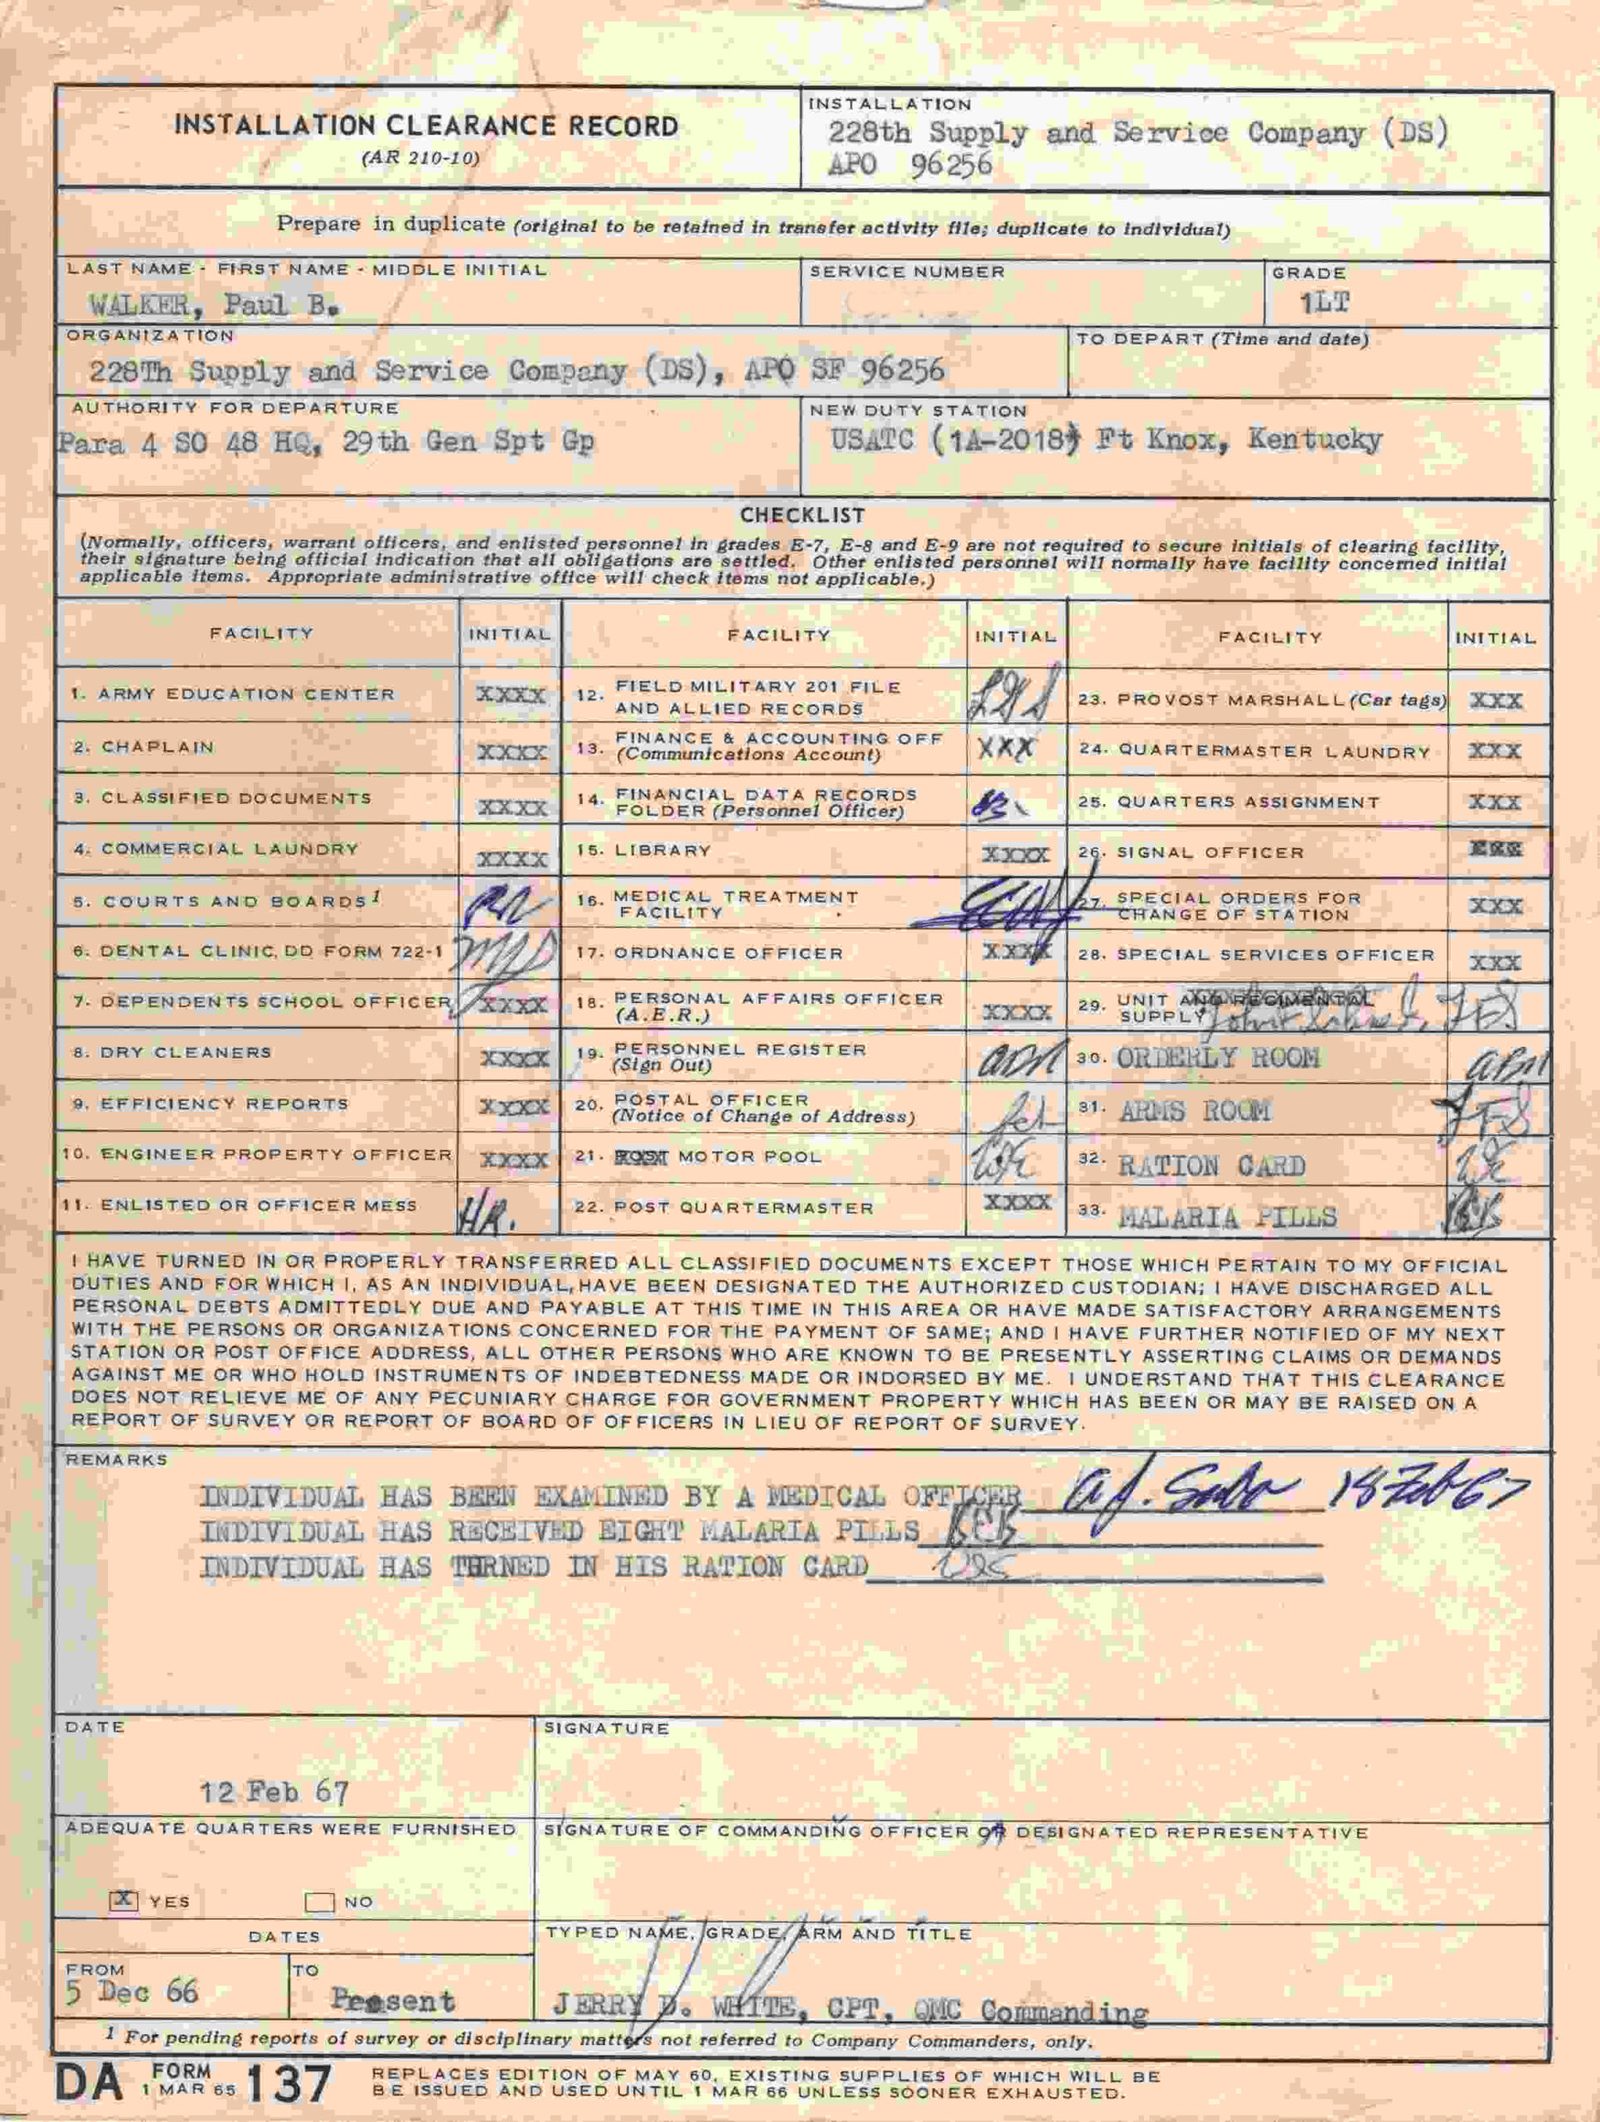 INSTALLATION CLEARANCE RECORD
(AR 210-10)
INSTALLATION
228th Supply and Service Company (DS)
APO 96256
Prepare in duplicate (original to be retained in transfer activity file; duplicate to individual)
LAST NAME - FIRST NAME - MIDDLE INITIAL
WALKER, Paul B.
SERVICE NUMBER
GRADE
1LT
ORGANIZATION
228Th Supply and Service Company (DS), APO SF 96256
TO DEPART (Time and date)
AUTHORITY FOR DEPARTURE
Para 4 SO 48 HQ, 29th Gen Spt Gp
NEW DUTY STATION
USATC (1A-2018) Ft Knox, Kentucky
CHECKLIST
(Normally, officers, warrant officers, and enlisted personnel in grades E-7, E-8 and E-9 are not required to secure initials of clearing facility,
their signature being official indication that all obligations are settled. Other enlisted personnel will normally have facility concerned initial
applicable items. Appropriate administrative office will check items not applicable.)
FACILITY INITIAL FACILITY INITIAL FACILITY INITIAL
1. ARMY EDUCATION CENTER XXXX
2. CHAPLAIN XXXX
3. CLASSIFIED DOCUMENTS XXXX
4. COMMERCIAL LAUNDRY XXXX
5. COURTS AND BOARDS 1
6. DENTAL CLINIC, DD FORM 722-1
7. DEPENDENTS SCHOOL OFFICER XXXX
8. DRY CLEANERS XXXX
9. EFFICIENCY REPORTS XXXX
10. ENGINEER PROPERTY OFFICER XXXX
11. ENLISTED OR OFFICER MESS HR.
12. FIELD MILITARY 201 FILE
AND ALLIED RECORDS
13. FINANCE & ACCOUNTING OFF XXX
(Communications Account)
14. FINANCIAL DATA RECORDS
FOLDER (Personnel Officer)
15. LIBRARY XXXX
16. MEDICAL TREATMENT
FACILITY
17. ORDNANCE OFFICER XXXX
18. PERSONAL AFFAIRS OFFICER XXXX
(A.E.R.)
19. PERSONNEL REGISTER
(Sign Out)
20. POSTAL OFFICER
(Notice of Change of Address)
21. POST MOTOR POOL
22. POST QUARTERMASTER XXXX
23. PROVOST MARSHALL (Car tags) XXX
24. QUARTERMASTER LAUNDRY XXX
25. QUARTERS ASSIGNMENT XXX
26. SIGNAL OFFICER XXX
27. SPECIAL ORDERS FOR
CHANGE OF STATION XXX
28. SPECIAL SERVICES OFFICER XXX
29. UNIT AND REGIMENTAL
SUPPLY JFS
30. ORDERLY ROOM
31. ARMS ROOM JFS
32. RATION CARD
33. MALARIA PILLS
I HAVE TURNED IN OR PROPERLY TRANSFERRED ALL CLASSIFIED DOCUMENTS EXCEPT THOSE WHICH PERTAIN TO MY OFFICIAL
DUTIES AND FOR WHICH I, AS AN INDIVIDUAL, HAVE BEEN DESIGNATED THE AUTHORIZED CUSTODIAN; I HAVE DISCHARGED ALL
PERSONAL DEBTS ADMITTEDLY DUE AND PAYABLE AT THIS TIME IN THIS AREA OR HAVE MADE SATISFACTORY ARRANGEMENTS
WITH THE PERSONS OR ORGANIZATIONS CONCERNED FOR THE PAYMENT OF SAME; AND I HAVE FURTHER NOTIFIED OF MY NEXT
STATION OR POST OFFICE ADDRESS, ALL OTHER PERSONS WHO ARE KNOWN TO BE PRESENTLY ASSERTING CLAIMS OR DEMANDS
AGAINST ME OR WHO HOLD INSTRUMENTS OF INDEBTEDNESS MADE OR INDORSED BY ME. I UNDERSTAND THAT THIS CLEARANCE
DOES NOT RELIEVE ME OF ANY PECUNIARY CHARGE FOR GOVERNMENT PROPERTY WHICH HAS BEEN OR MAY BE RAISED ON A
REPORT OF SURVEY OR REPORT OF BOARD OF OFFICERS IN LIEU OF REPORT OF SURVEY.
REMARKS
INDIVIDUAL HAS BEEN EXAMINED BY A MEDICAL OFFICER
INDIVIDUAL HAS RECEIVED EIGHT MALARIA PILLS
INDIVIDUAL HAS TURNED IN HIS RATION CARD
DATE
12 Feb 67
SIGNATURE
ADEQUATE QUARTERS WERE FURNISHED
X YES NO
SIGNATURE OF COMMANDING OFFICER OR DESIGNATED REPRESENTATIVE
DATES
FROM
5 Dec 66
TO
Present
TYPED NAME, GRADE, ARM AND TITLE
JERRY D. WHITE, CPT, QMC Commanding
1 For pending reports of survey or disciplinary matters not referred to Company Commanders, only.
DA FORM 137
1 MAR 65
REPLACES EDITION OF MAY 60, EXISTING SUPPLIES OF WHICH WILL BE
BE ISSUED AND USED UNTIL 1 MAR 66 UNLESS SOONER EXHAUSTED.